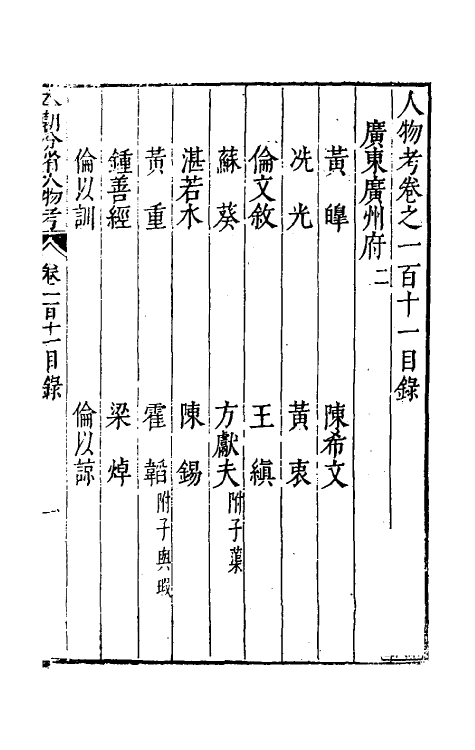 人物考卷之一百十一目錄
廣東廣州府二
黃皞 陳希文
冼光 黃衷
倫文敘 王縝
蘇葵 方獻夫附子菓
湛若水 陳錫
黃重 霍韜附子與瑕
鍾善經 梁焯
倫以訓 倫以諒
本朝分省人物考 卷一百十一目錄 一